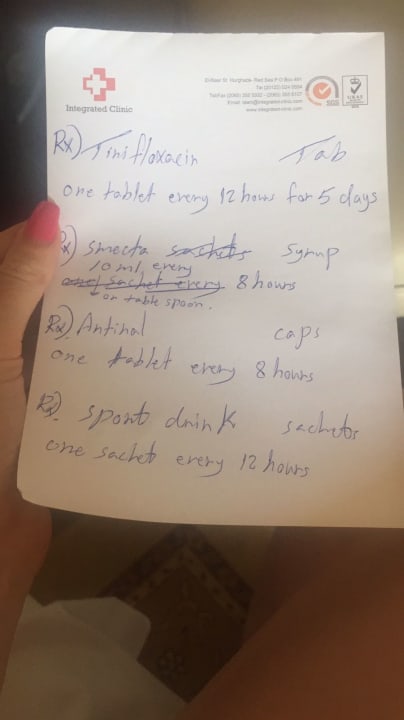 Integrated Clinic
El-Nasr St. Hurghada- Red Sea P.O Box 491
www.integratedclinic.com
SGS
UKAS
Rx) Tinifloxacin Tab
one tablet every 12 hours for 5 days
Rx) Smecta sachets syrup
10 ml every
one sachet every 8 hours
or table spoon.
Rx) Antinal caps
one tablet every 8 hours
Rx) sport drink sachets
one sachet every 12 hours